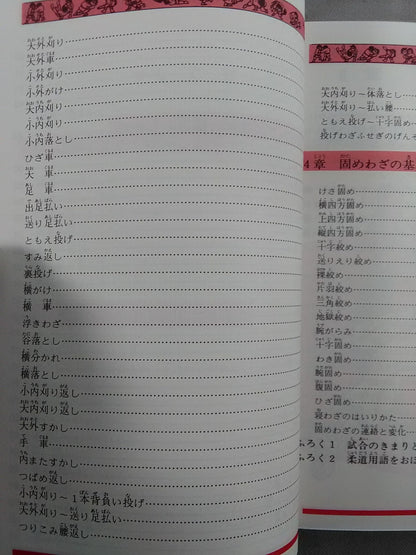 大外刈り
大外車
小外刈り
小外がけ
大内刈り
小内刈り
小内落とし
ひざ車
大車
足車
出足払い
送り足払い
ともえ投げ
すみ返し
裏投げ
横がけ
横車
浮きわざ
谷落とし
横分かれ
横落とし
小内刈り返し
大内刈り返し
大外すかし
手車
内またすかし
つばめ返し
小内刈り〜1本背負い投げ
大外刈り〜送り足払い
つりこみ腰返し
大内刈り〜体落とし
大外刈り〜払い腰
ともえ投げ〜十字固め
投げわざふせぎのげんそ
4章 固めわざの基
けさ固め
横四方固め
上四方固め
縦四方固め
十字絞め
送りえり絞め
裸絞め
片羽絞め
三角絞め
地獄絞め
腕がらみ
十字固め
わき固め
腕固め
腹固め
ひざ固め
寝わざのはいりかた
固めわざの連絡と変化
ふろく1 試合のきまりと
ふろく2 柔道用語をおぼ